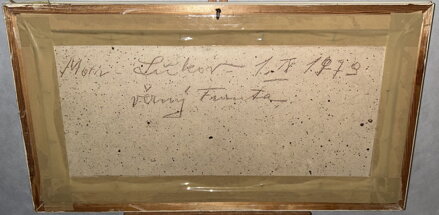 Mor. Lískov 1. IV 1979
věrný Franta